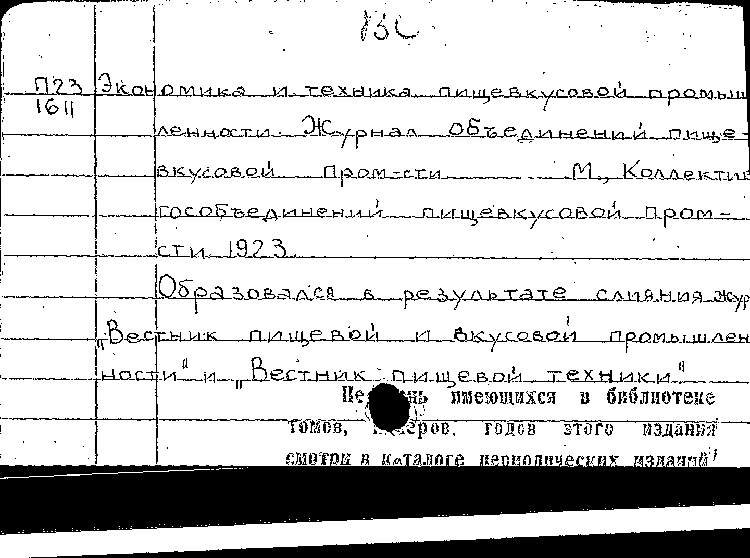 П23 Экономика и техника пищевкусовой промыш
1611
ленности. Журнал объединений пище-
вкусовой пром-сти М., Коллектив
гособъединений пищевкусовой пром-
сти 1923
Образовался в результате слияния жур
„Вестник пищевой и вкусовой промышлен
ности" и „Вестник пищевой техники"
имеющихся в библиотеке
томов, годов этого издания
смотри в каталоге периодических изданий